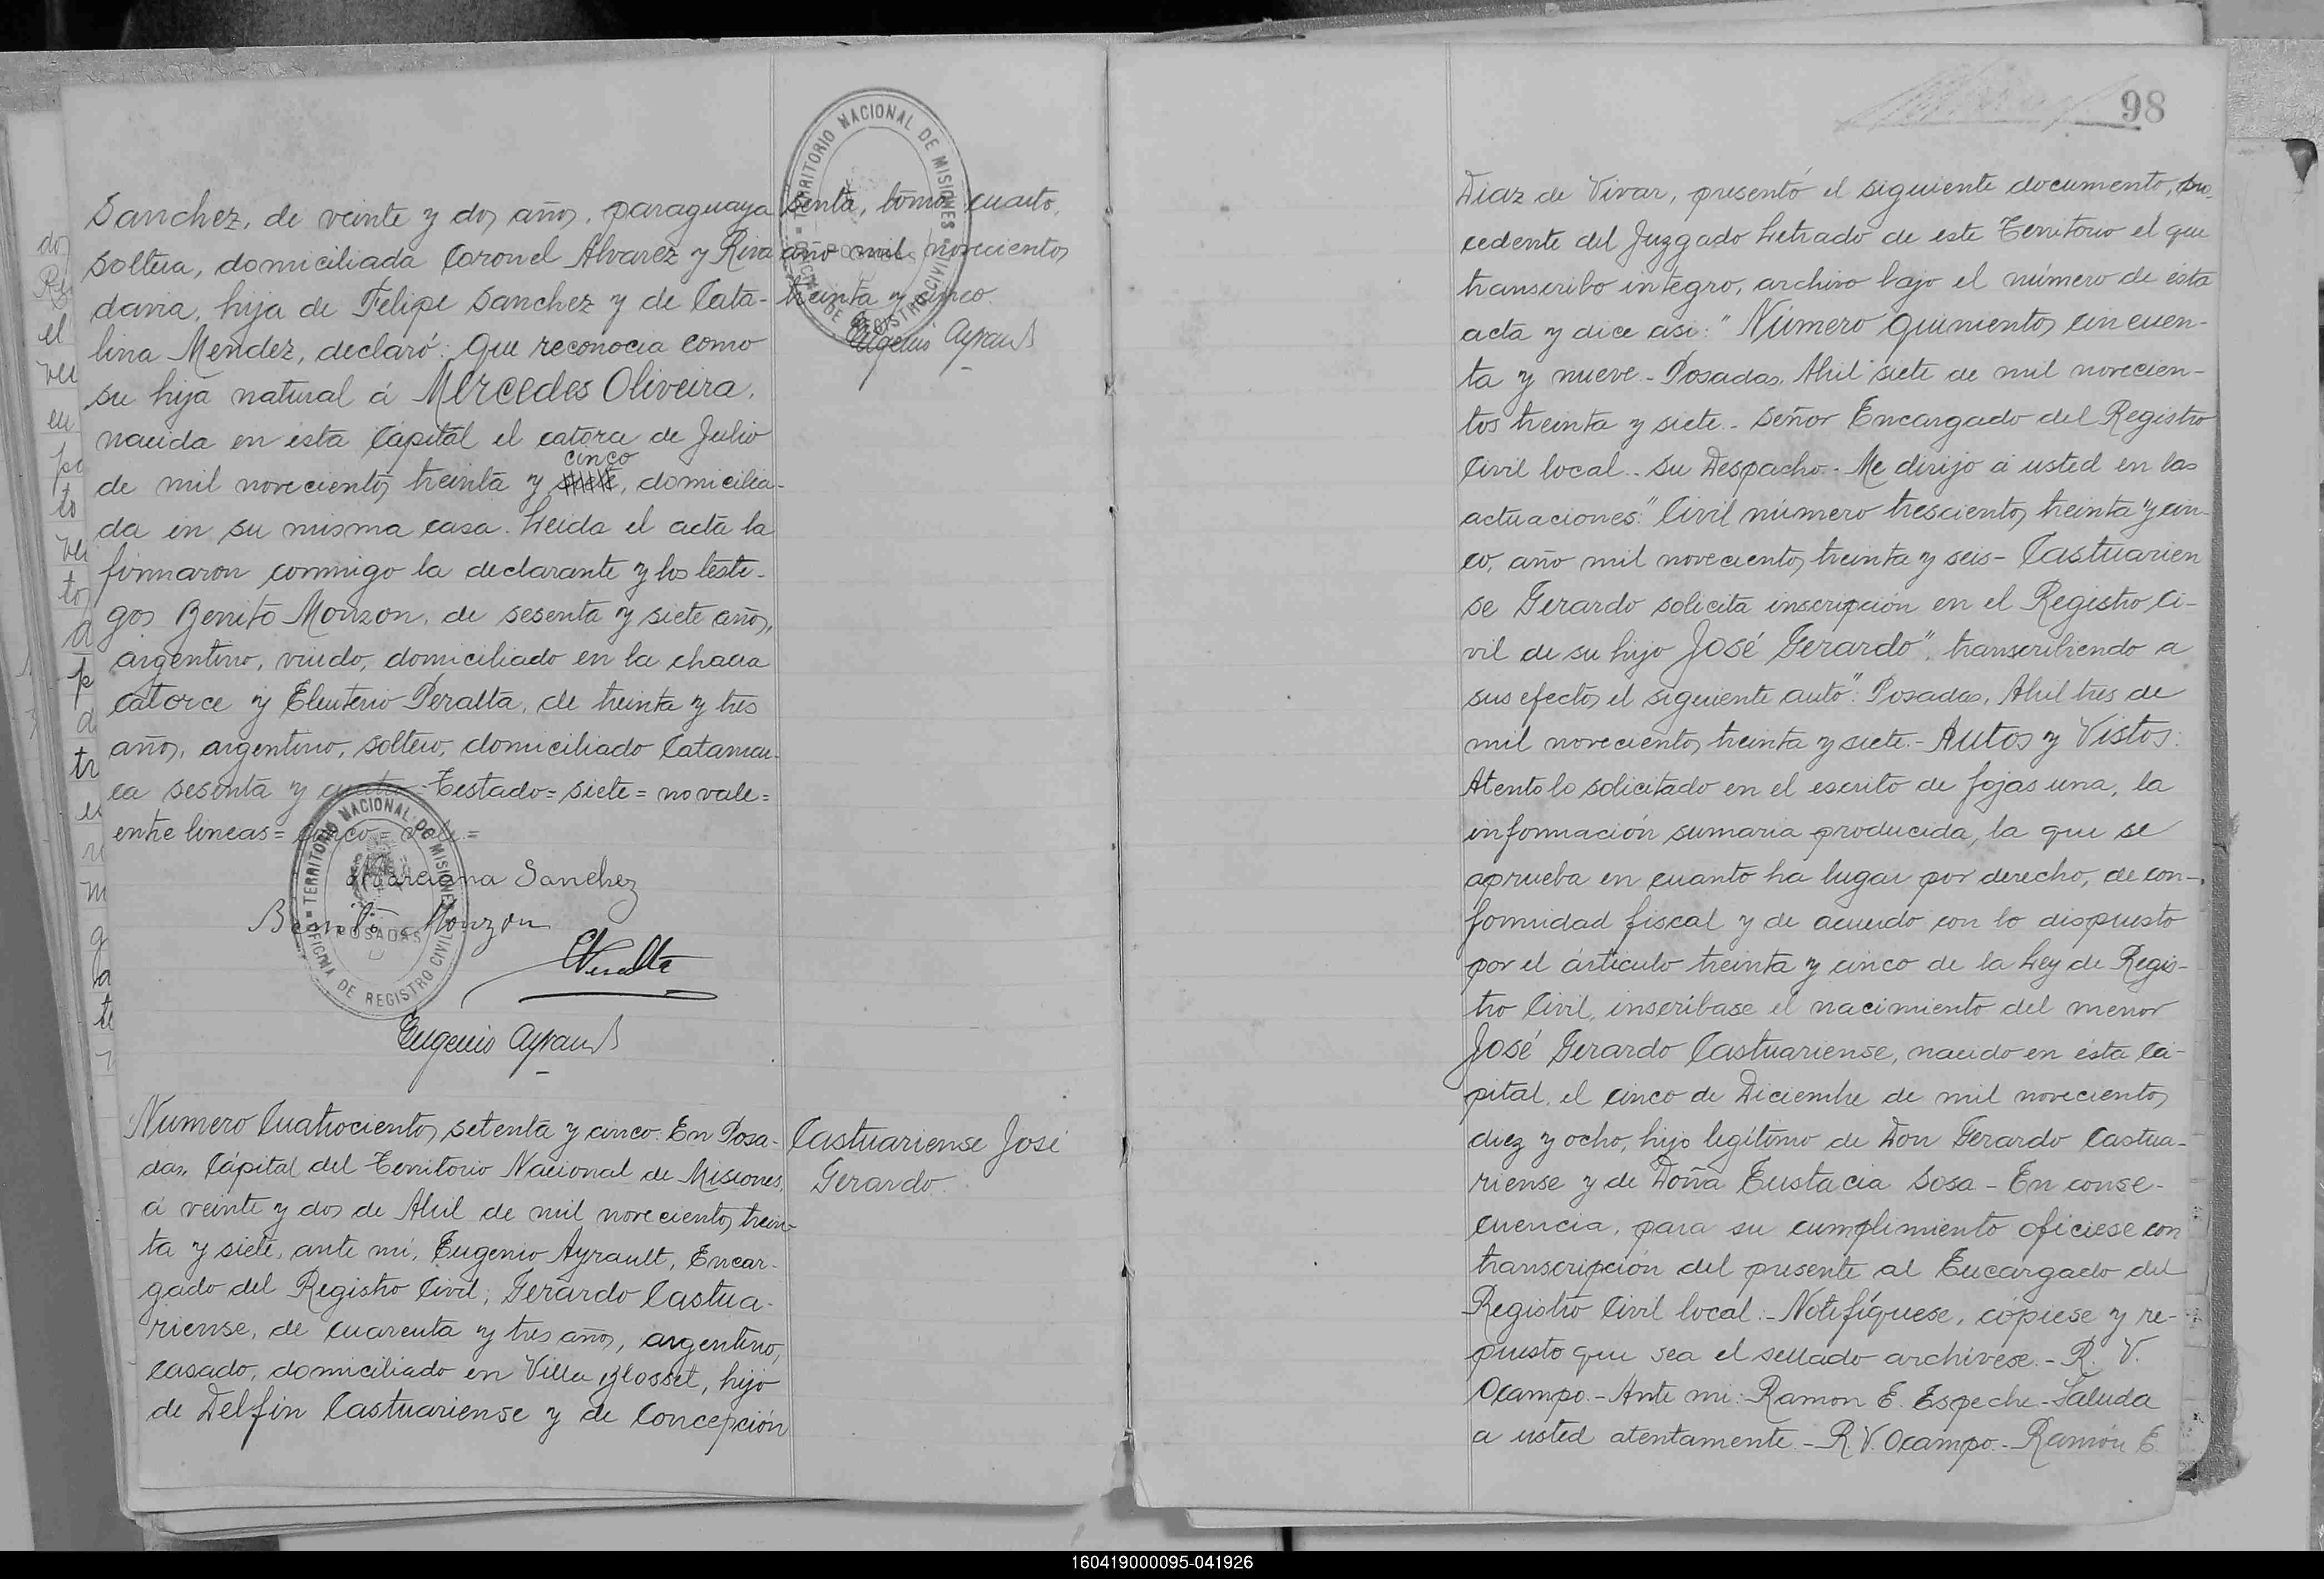 Sanchez, de veinte y dos años, paraguaya
soltera, domiciliada Coronel Alvarez y Riva
davia, hija de Felipe Sanchez y de Cata-
lina Mendez, declaró: Que reconocia como
su hija natural á Mercedes Oliveira,
nacida en esta Capital el catorce de Julio
cinco
de mil novecientos treinta y siete, domicilia-
da en su misma casa. Leida el acta la
firmaron conmigo la declarante y los testi-
gos Benito Monzon, de sesenta y siete años,
argentino, viudo, domiciliado en la chacra
catorce y Eleuterio Peralta, de treinta y tres
años, argentino, soltero, domiciliado Catamar-
ca sesenta y cuatro - Testado = siete = no vale =
entre lineas = cinco = vale =
Marciana Sanchez
Benito Monzon
EPeralta
Eugenio Ayrault
TERRITORIO NACIONAL DE MISIONES
POSADAS
OFICINA DE REGISTRO CIVIL
senta, tomo cuarto,
año mil novecientos
treinta y cinco.
Eugenio Ayrault
TERRITORIO NACIONAL DE MISIONES
POSADAS
OFICINA DE REGISTRO CIVIL
Numero Cuatrocientos setenta y cinco. En Posa-
das, Cápital del Territorio Nacional de Misiones,
á veinte y dos de Abril de mil novecientos trein-
ta y siete, ante mi, Eugenio Ayrault, Encar-
gado del Registro Civil, Gerardo Castua-
riense, de cuarenta y tres años, argentino,
casado, domiciliado en Villa Blosset, hijo
de Delfin Castuariense y de Concepción
Castuariense José
Gerardo
98
Diaz de Vivar, presentó el siguiente documento, pro
cedente del Juzgado Letrado de este Territorio el que
transcribo integro, archivo bajo el número de ésta
acta y dice asi: "Número quinientos cincuen-
ta y nueve - Posadas, Abril siete de mil novecien-
tos treinta y siete - Señor Encargado del Registro
Civil local - Su Despacho - Me dirijo á usted en las
actuaciones: "Civil número trescientos treinta y cin-
co, año mil novecientos treinta y seis - Castuarien
se Gerardo solicita inscripción en el Registro Ci-
vil de su hijo José Gerardo", transcribiendo a
sus efectos el siguiente auto": Posadas, Abril tres de
mil novecientos treinta y siete. - Autos y Vistos:
Atento lo solicitado en el escrito de fojas una, la
información sumaria producida, la que se
aprueba en cuanto ha lugar por derecho, de con-
formidad fiscal y de acuerdo con lo dispuesto
por el árticulo treinta y cinco de la Ley de Regis-
tro Civil, inscribase el nacimiento del menor
José Gerardo Castuariense, nacido en ésta Ca-
pital, el cinco de Diciembre de mil novecientos
diez y ocho, hijo legítimo de Don Gerardo Castua-
riense y de Doña Eustacia Sosa - En conse-
cuencia, para su cumplimiento ofíciese con
transcripción del presente al Encargado del
Registro Civil local. - Notifíquese, cópiese y re-
puesto que sea el sellado archívese. - R. V.
Ocampo. - Ante mi: Ramon E. Espeche - Saluda
a usted atentamente. - R. V. Ocampo. - Ramón E.
160419000095-041926